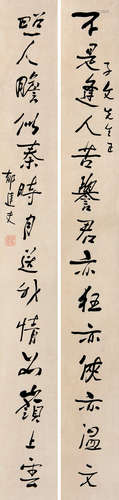 不是逢人苦譽君亦狂亦俠亦溫文
子文先生正
照人膽似秦時月送我情如嶺上雲
郁達夫